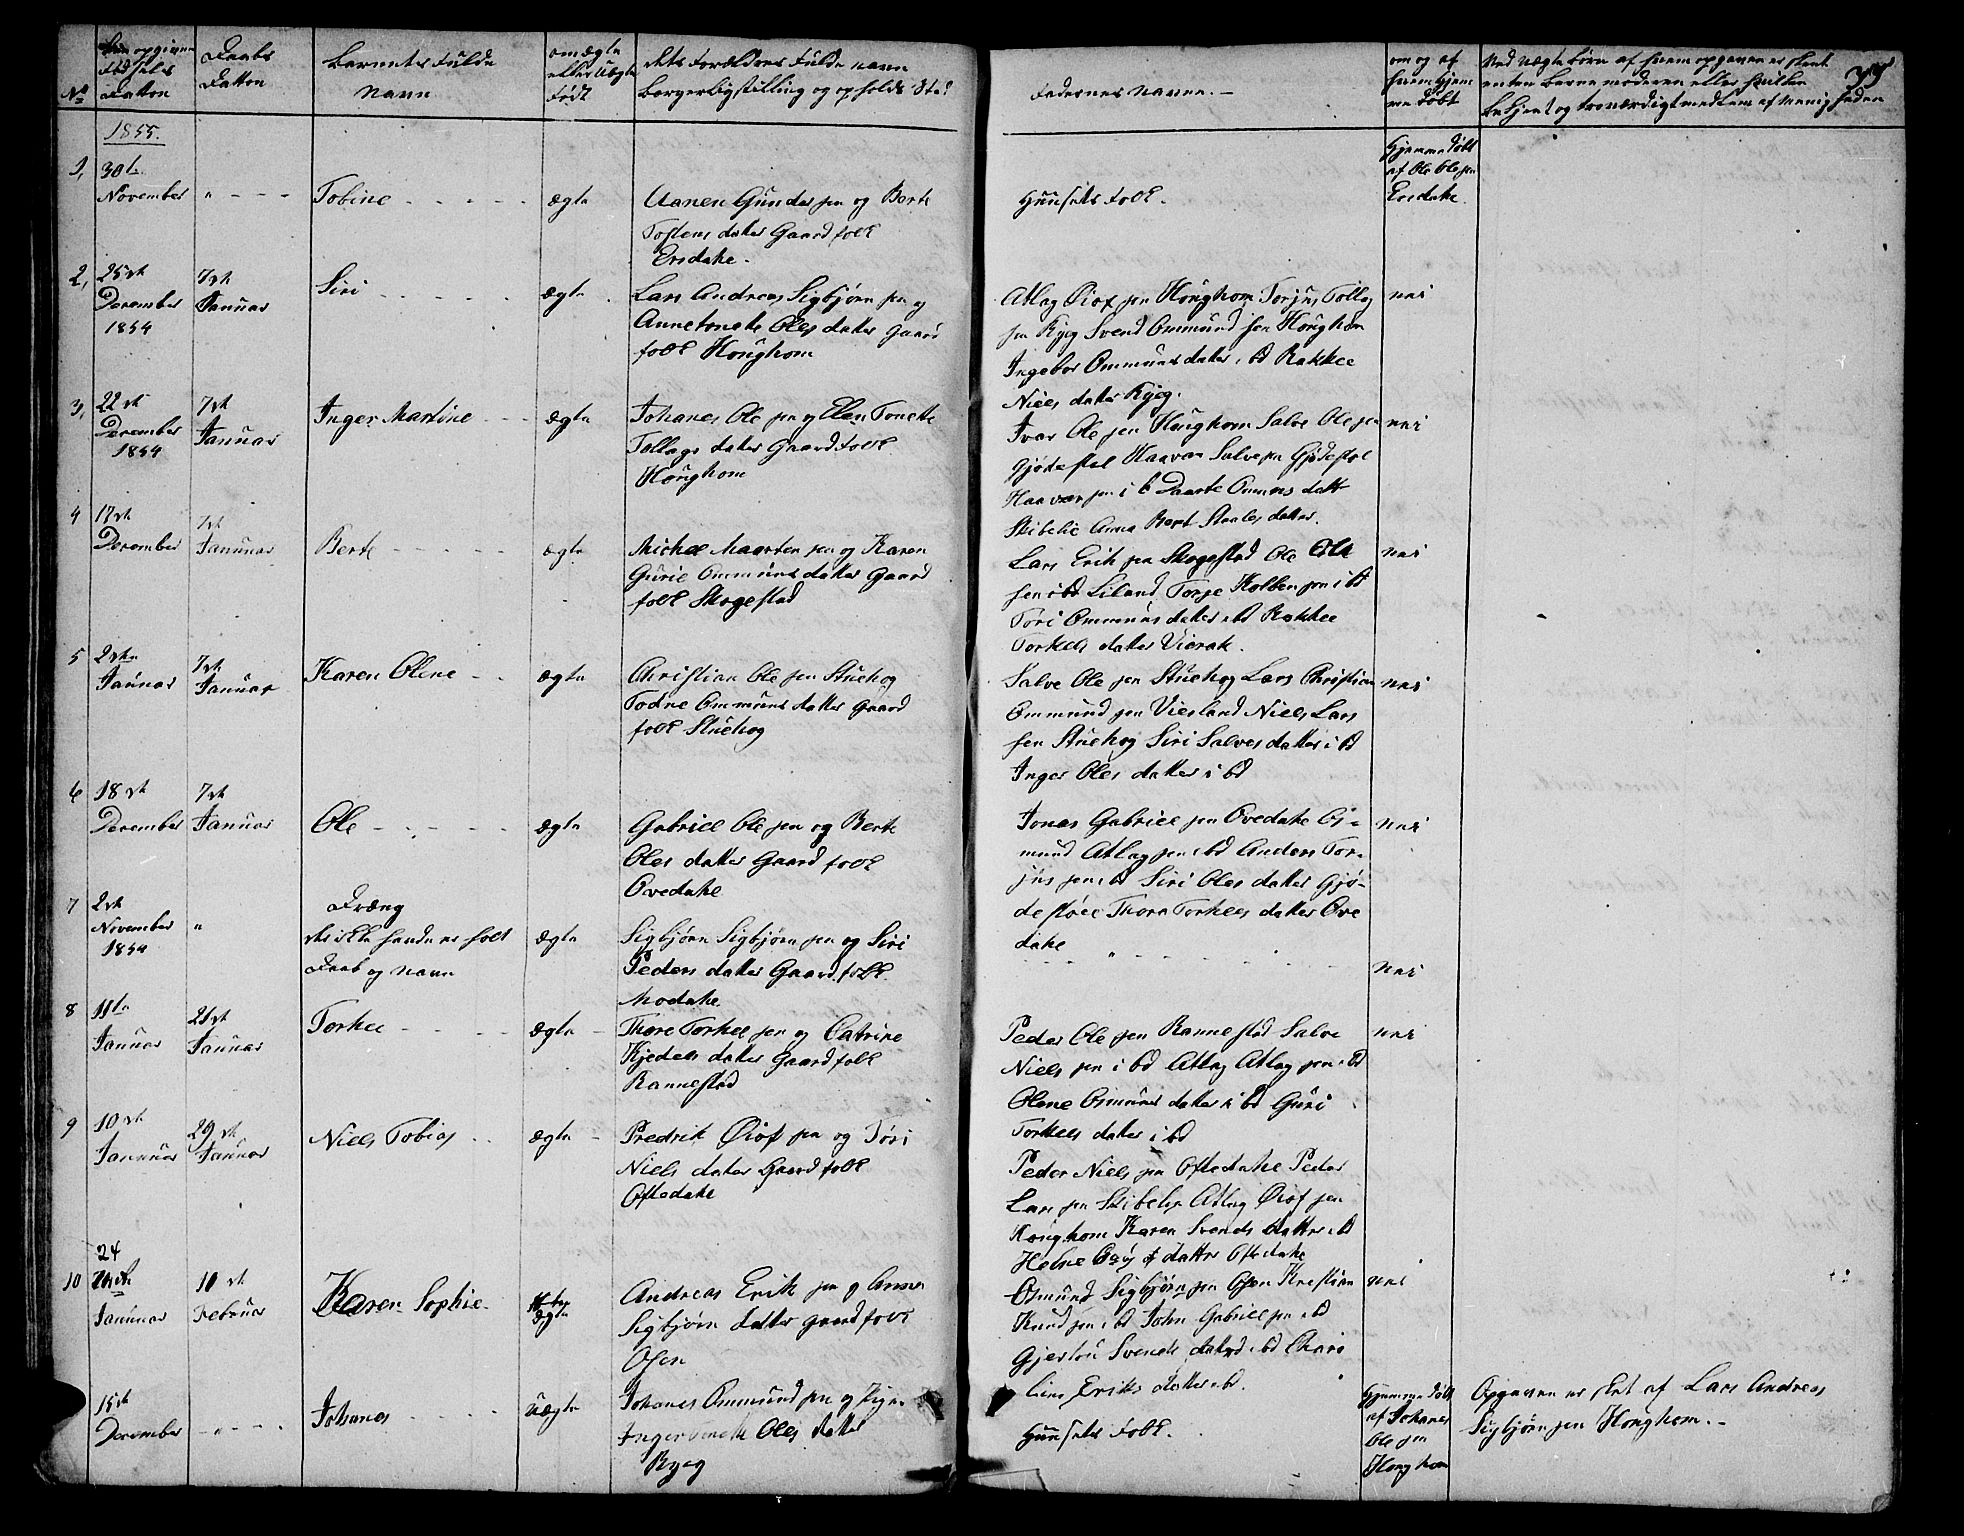 No
opgivne
Fødsels
Datton
Daabs
Datton
Barnets Fulde
Navn
om ægte
eller Uægte
Født
dets Forældres Fulde navn
borgerligstilling og opholds Sted
Fadernes navne. —
om og af
hvem hjem
me døbt
Ved uægte børn af hvem opgaven er skeet
enten barne moderen eller hvilken
bekjent og troværdigt medlem af menigheden
1855.
1,
30te
November
" - - -
Tobine - - - - -
ægte
Aanen Gunder sen og Berte
Tostens datter Gaard folk
Ersdahe.
Huusets Folk.
Hjemme døbt
af Ole Ole sen
Ersdahe.
2,
25de
December
1854
7de
Januar
Siri - - - - -
ægte
Lars Andreas Sigbjørn sen og
Annetonette Oles datter Gaard
folk Houghom
Atlag Øiof sen Houghom Torjus Tollag
sen Ryeg Svend Ommund sen Houghom
Ingebor Ommuns datter ibd Rakkee
Niels datter Ryeg.
nei
3,
22de
December
1854
7de
Januar
Inger Martine - -
ægte
Johanes Ole sen og Elen Tonette
Tollags datter Gaard folk
Houghom
Ivar Ole sen Houghom Salve Ole sen
Gjødestøl Haavar Salve sen Gjødestøl
Haavar sen i b Daarte Ommns datt
Skibelie Anna Bert Staales datter.
nei
4
17de
December
7de
Januar
Berte - - - - -
ægte
Michel Maarten sen og Karen
Gurie Ommuns datter Gaard
folk Skogestad
Lars Erik sen Skogestad Ole Ole
sen ibd Liland Torje Kolben sen i bd
Tori Ommuns datter ibd Rakkee
Torkels datter Vierak.
nei
5
2den
Januar
7de
Januar
Karen Olene - -
ægte
Christian Ole sen Stuehog
Todne Ommuns datter Gaard
folk Stuehog
Salve Ole sen Stuehog Lars Christian
Ommund sen Viesland Niels Lars
sen Stuehog Siri Salves datter i bd
Inger Oles datter i bd
nei
6
18de
December
7de
Januar
Ole - - - - -
ægte
Gabriel Ole sen og Berte
Oles datter Gaard folk
Ovedahe
Jonas Gabriel sen Ovedahe Os-
mund Atlag sen ibd Anders Tor-
jus sen ibd Siri Oles datter Gjø-
destøll Thora Torkels datter Ove
dahe
nei
7
2de
November
1854
"
Dræng
Daab og Navn
ægte
Sigbjørn Sigbjørn sen og Siri
Peders datter Gaard folk
Modahe.
- - - " - - - - - - -
nei
8
11te
Januar
21de
Januar
Torkel - - - -
ægte -
Thore Torkel sen og Catrine
Kjedels datter Gaard folk
Rannestad
Peder Ole sen Rannestad Salve
Niels sen i bd Atlag Atlag sen ibd
Olene Osmuns datter i bd Guri
Torkels datter i bd
nei
9
10de
Januar
29de
Januar
Niels Tobias - -
ægte -
Predrik Øiof sen og Jøri
Niels datter Gaard folk
Oftedahe
Peder Niels sen Oftedahe Peder
Lars sen Skibelie Atlag Øiof sen
Houghom Karen Svends datter ibd
Helve datter Oftedahe
10
24
Januar
11de
Februar
Karen Sophie -
ægte
Andreas Erik sen og Anne
Sigbjørn datter Gaard folk
Osen
Osmund Sigbjørn sen Osen Krestian
Knud sen ibd John Gabriel sen ibd
Gjertru Svends datter ibd Charo
line Eriks datter ibd.
nei
15de
December
- " - - -
Johanes - - - -
uægte
Johanes Ommund sen og
Oles datter
Ryeg
Huusets Folk.
Hjemme døbt
af Johanes
Ole sen
Houghom
Opgaven er skeet af Lars Andreas
Sigbjørn sen Houghom. —